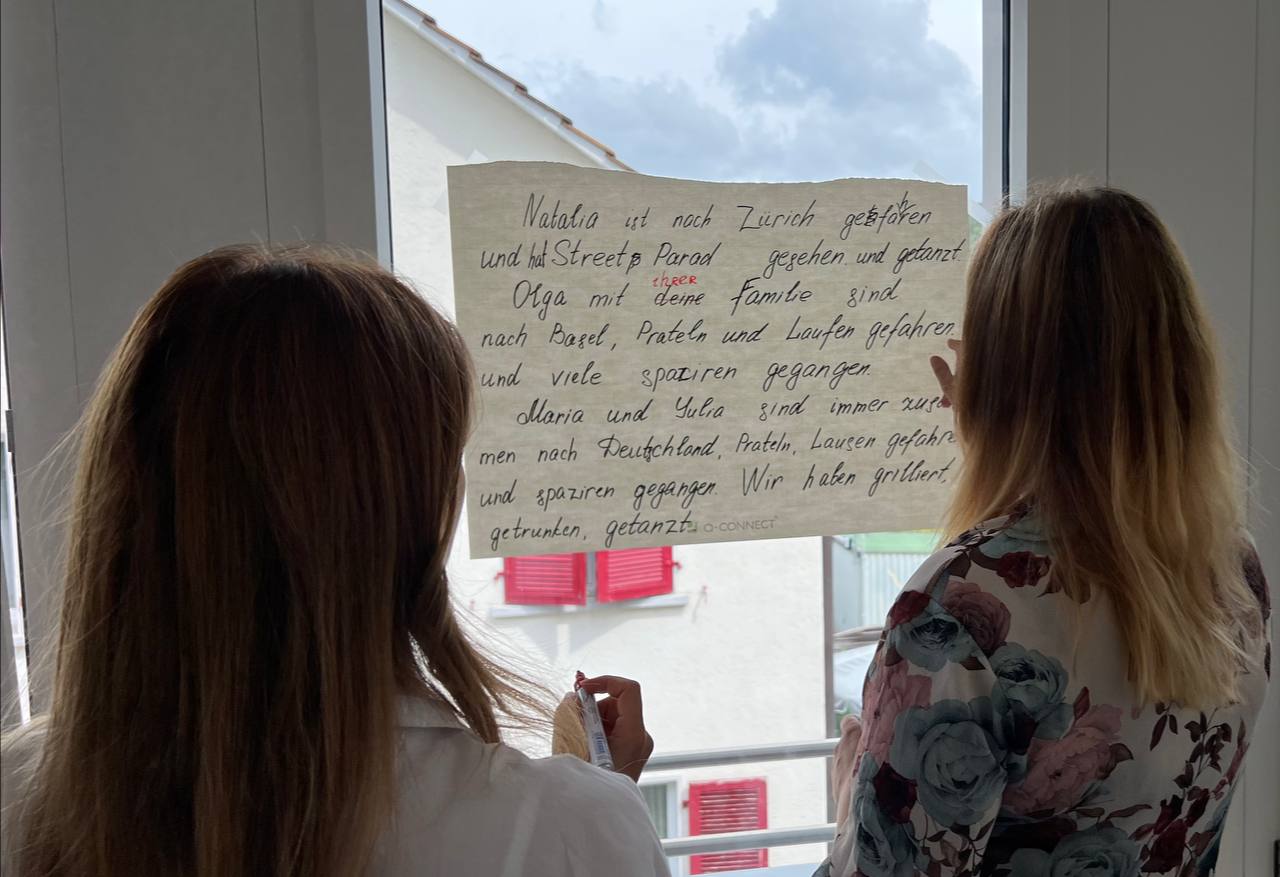 Natalia ist nach Zürich gefahren
und hat Street Parad gesehen. und getanzt.
Olga mit deine ihrer Familie sind
nach Basel, Prateln und Laufen gefahren.
und viele spaziren gegangen.
Maria und Yulia sind immer zusa
men nach Deutschland, Prateln, Lausen gefahre
und spaziren gegangen. Wir haben grilliert,
getrunken, getanzt. Q-CONNECT